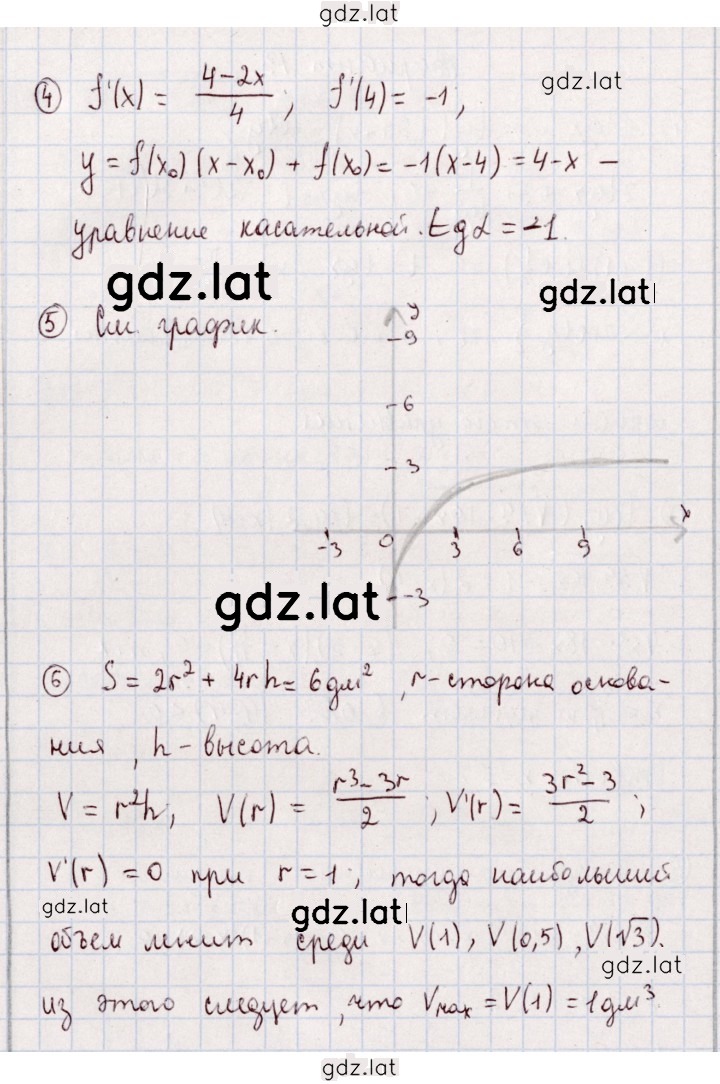 gdz.lat
④ f'(x) = (4-2x)/4; f'(4) = -1;
gdz.lat
y = f'(x₀)(x-x₀) + f(x₀) = -1(x-4) = 4-x –
уравнение касательной. tgα = -1.
gdz.lat
gdz.lat
⑤ См. график.
y
-9
-6
-3
x
-3 0 3 6 9
-3
gdz.lat
⑥ S = 2r² + 4rh = 6 дм², r-сторона основа-
ния, h-высота.
V = r²h; V(r) = (r³-3r)/2; V'(r) = (3r²-3)/2;
V'(r) = 0 при r = 1; тогда наибольший
gdz.lat
gdz.lat
объем лежит среди V(1), V(0,5), V(√3).
gdz.lat
из этого следует, что Vmax = V(1) = 1 дм³
gdz.lat